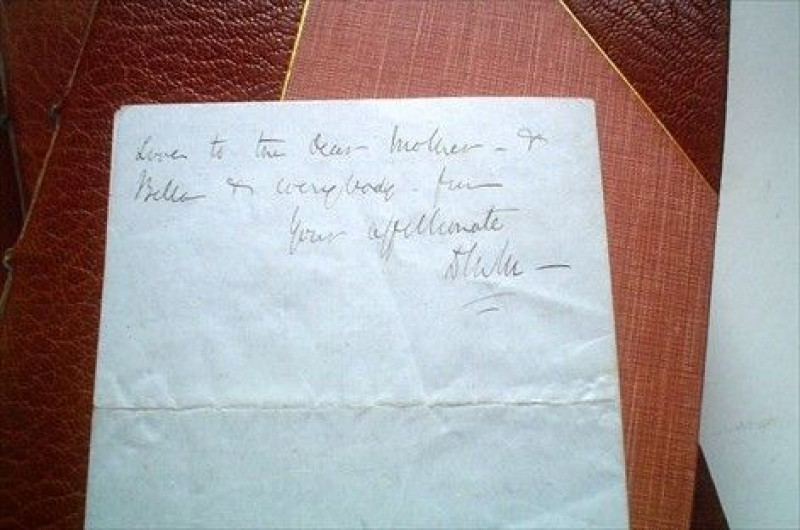 Love to the Dear Mother - &
Bella & everybody. from
Your affectionate